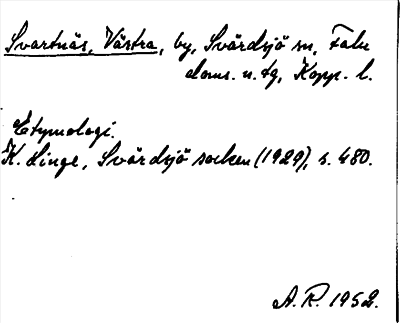 Svartnäs, Västra, by, Svärdsjö sn, Falu
doms. o. tg, Kopp. l.
Etymologi.
K. Linge, Svärdsjö socken (1929), s. 480.
A. R. 1952.